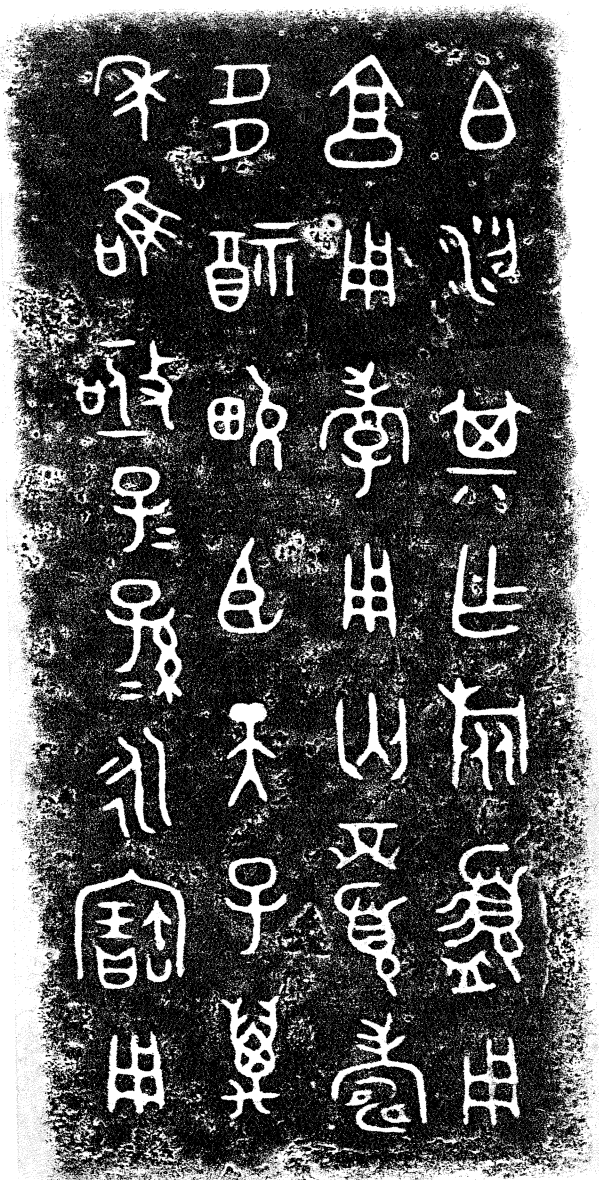 白梁其乍旅盨用
享用孝用匄眉壽
多福畯臣天子萬
年唯亟子=孫=永寶用